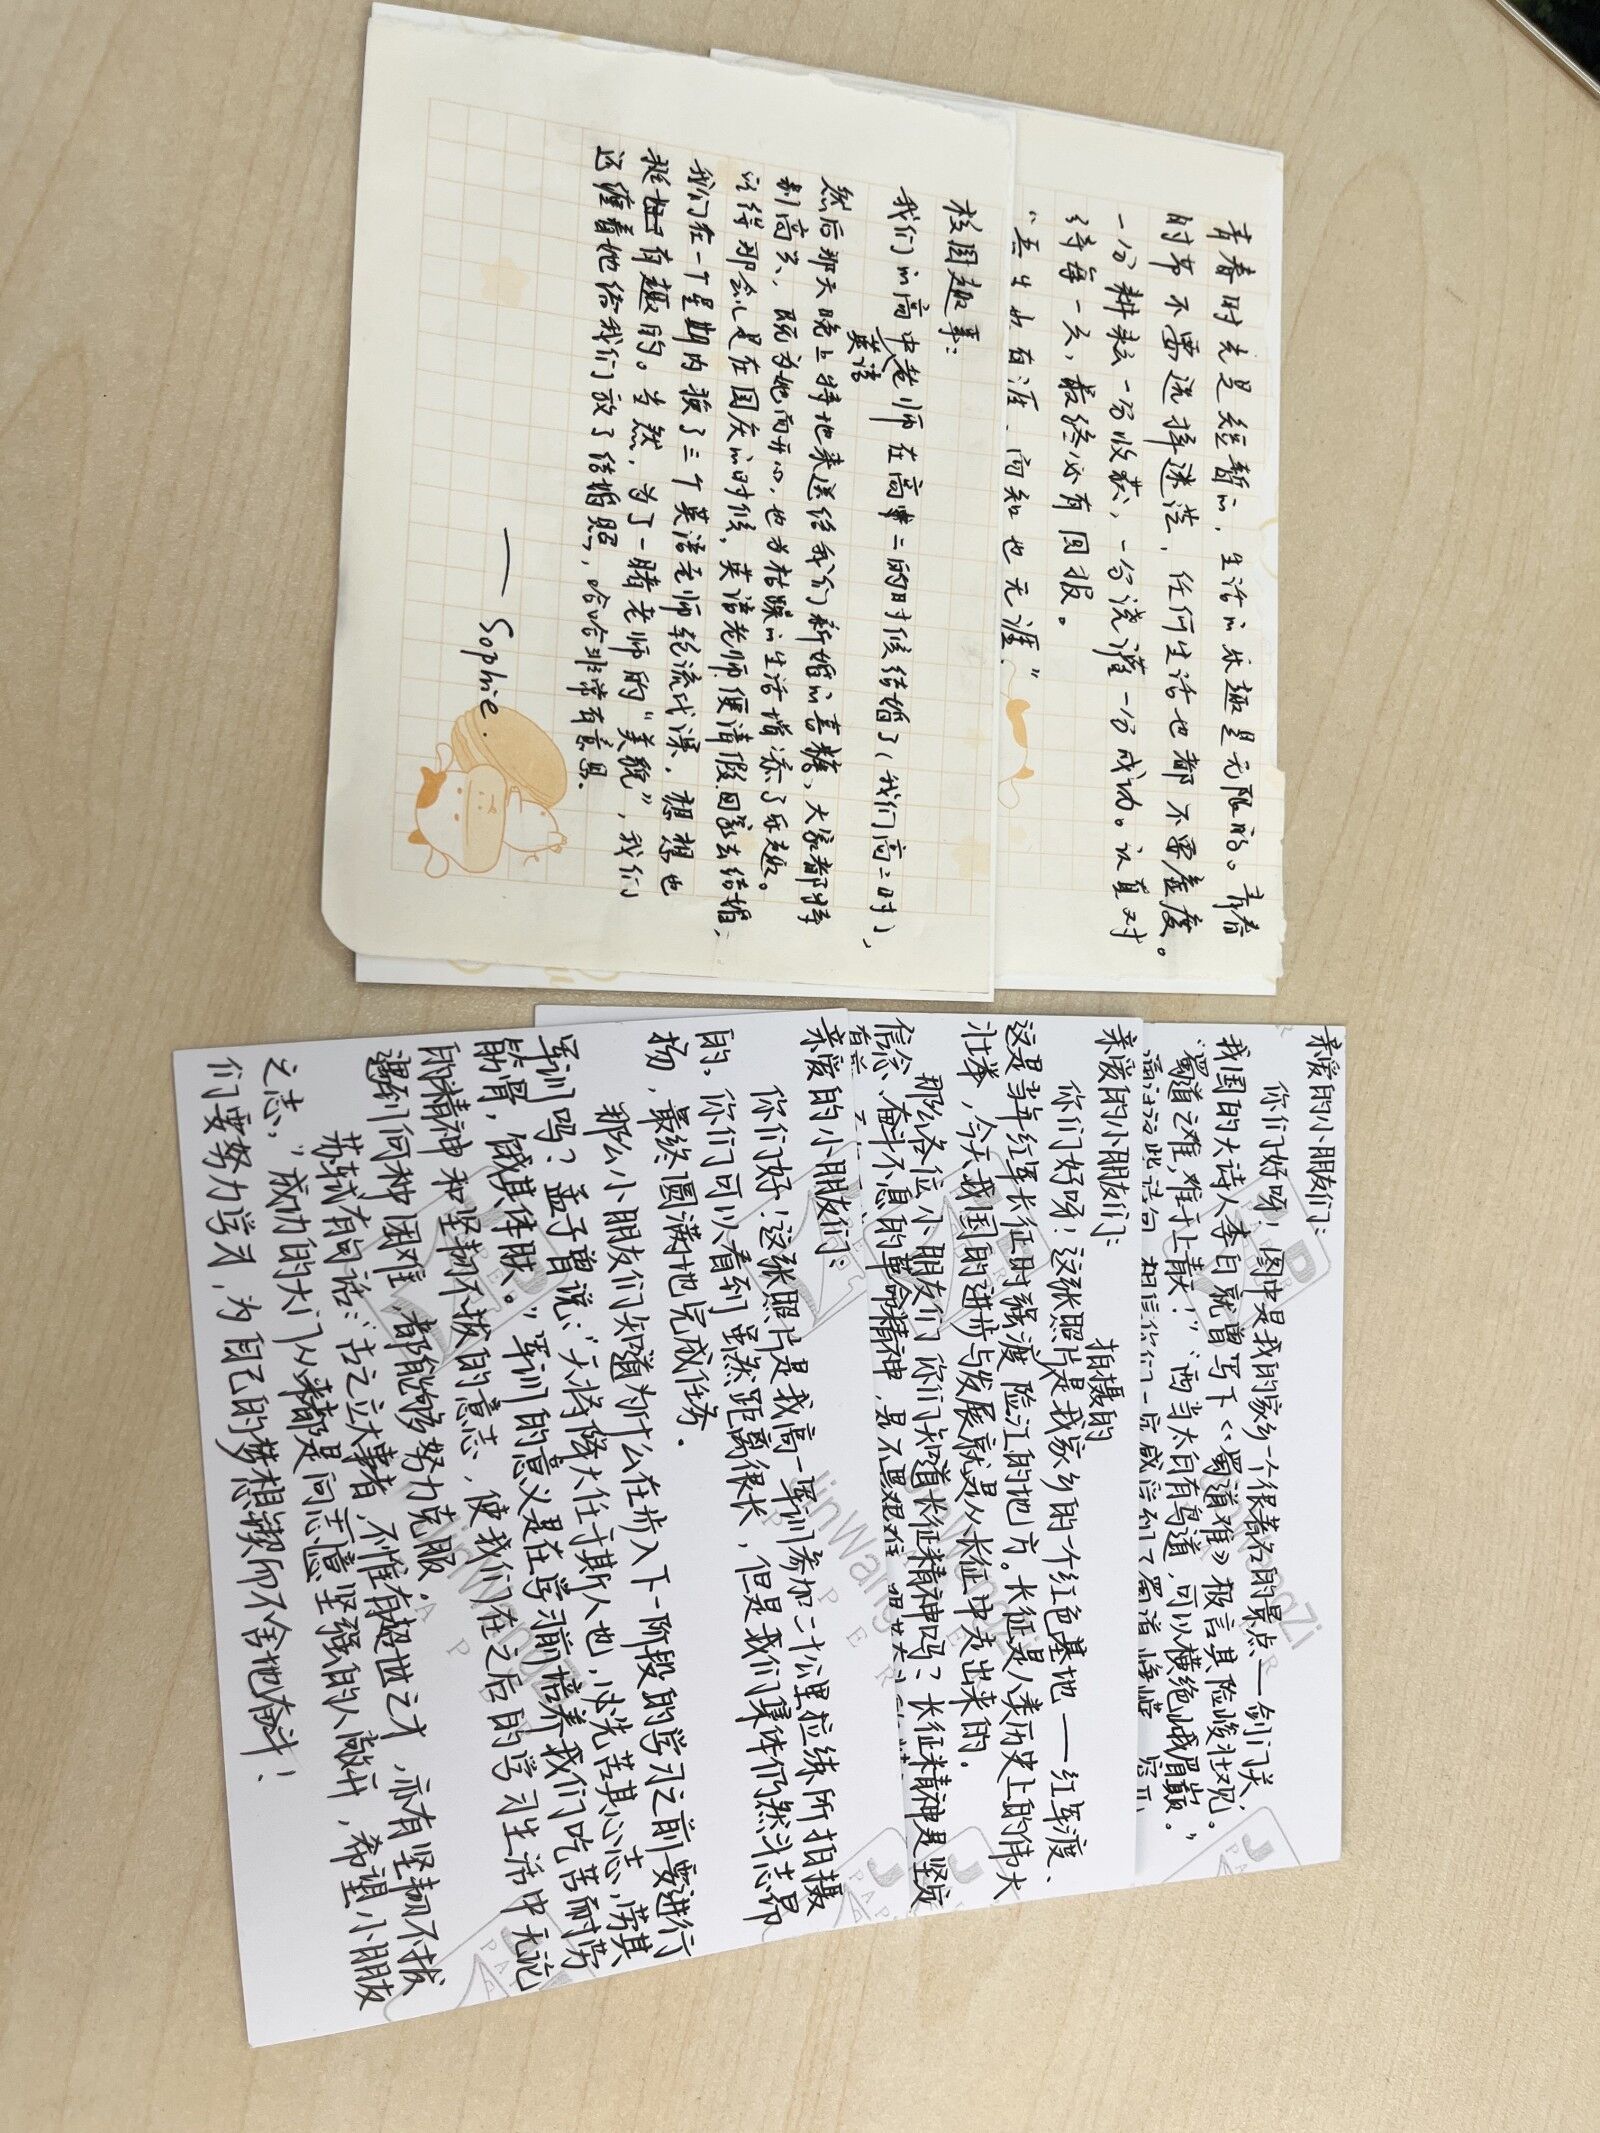 青春时光是短暂的，生活的乐趣是无限的。青春
时节不需选择迷茫，任何生活也都不要虚度。
一分耕耘一分收获，一分浇灌一分成功。认真对
待每一天，最终必有回报。
“吾生也有涯，而知也无涯。”
校园趣事：
我们的高中英语老师在高二的时候结婚了（我们高二时），
然后那天晚上特地来送给我们新婚的喜糖，大家都特
别高兴，既为她而开心，也为枯躁的生活增添了乐趣。
记得那会儿是在国庆的时候，英语老师便请假回家去结婚，
我们在一个星期内换了三个英语老师轮流代课，想想也
挺有趣的。当然，为了一睹老师的“美貌”，我们
还缠着她给我们放了结婚照，哈哈非常有意思。
——Sophie.
亲爱的小朋友们：
你们好呀！图中是我的家乡一个很著名的景点—剑门关，
我国的大诗人李白就曾写下《蜀道难》极言其险峻壮观。
“蜀道之难，难于上青天！”“西当太白有鸟道，可以横绝峨眉巅。”
这些诗句，相信你们一定感受到了蜀道
亲爱的小朋友们：
你们好呀！这张照片是我家乡拍摄的的一个红色基地——红军渡、
这是当年红军长征时强渡险江的地方。长征是人类历史上的伟大
壮举，今天我国的进步与发展就是从长征中走出来的。
那么各位小朋友们你们知道长征精神吗？长征精神是坚定
信念、奋斗不息的革命精神，是不畏艰难
亲爱的小朋友们：
你们好！这张照片是我高一军训参加二十公里拉练所拍摄
的，你们可以看到虽然距离很长，但是我们集体仍然斗志昂
扬，最终圆满地完成任务。
那么小朋友们知道为什么在步入下一阶段的学习之前要进行
军训吗？孟子曾说：“天将降大任于斯人也，必先苦其心志，劳其
筋骨，饿其体肤。”军训的意义是在学习前培养我们吃苦耐劳
的精神和坚韧不拔的意志，使我们在之后的学习生活中无论
遇到何种困难，都能够努力克服。
苏轼有句话：“古之立大事者，不惟有超世之才，亦有坚韧不拔
之志，”成功的大门从来都是向意志坚强的人敞开，希望小朋友
们要努力学习，为自己的梦想锲而不舍地奋斗！